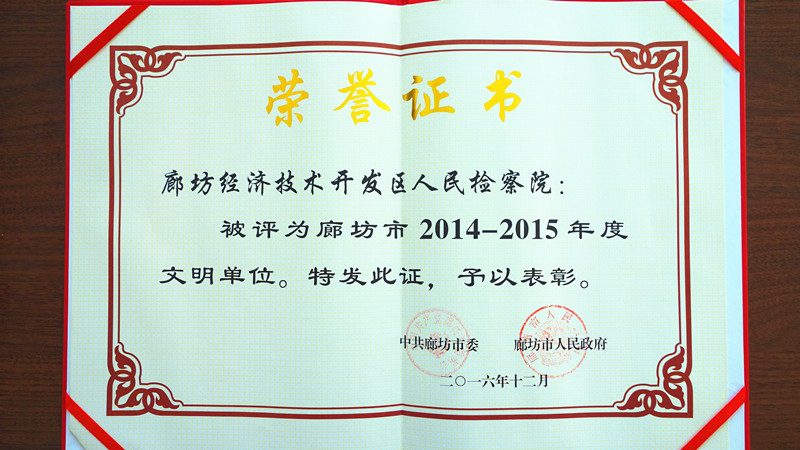 荣誉证书
廊坊经济技术开发区人民检察院：
被评为廊坊市2014-2015年度
文明单位。特发此证，予以表彰。
中共廊坊市委 廊坊市人民政府
二〇一六年十二月